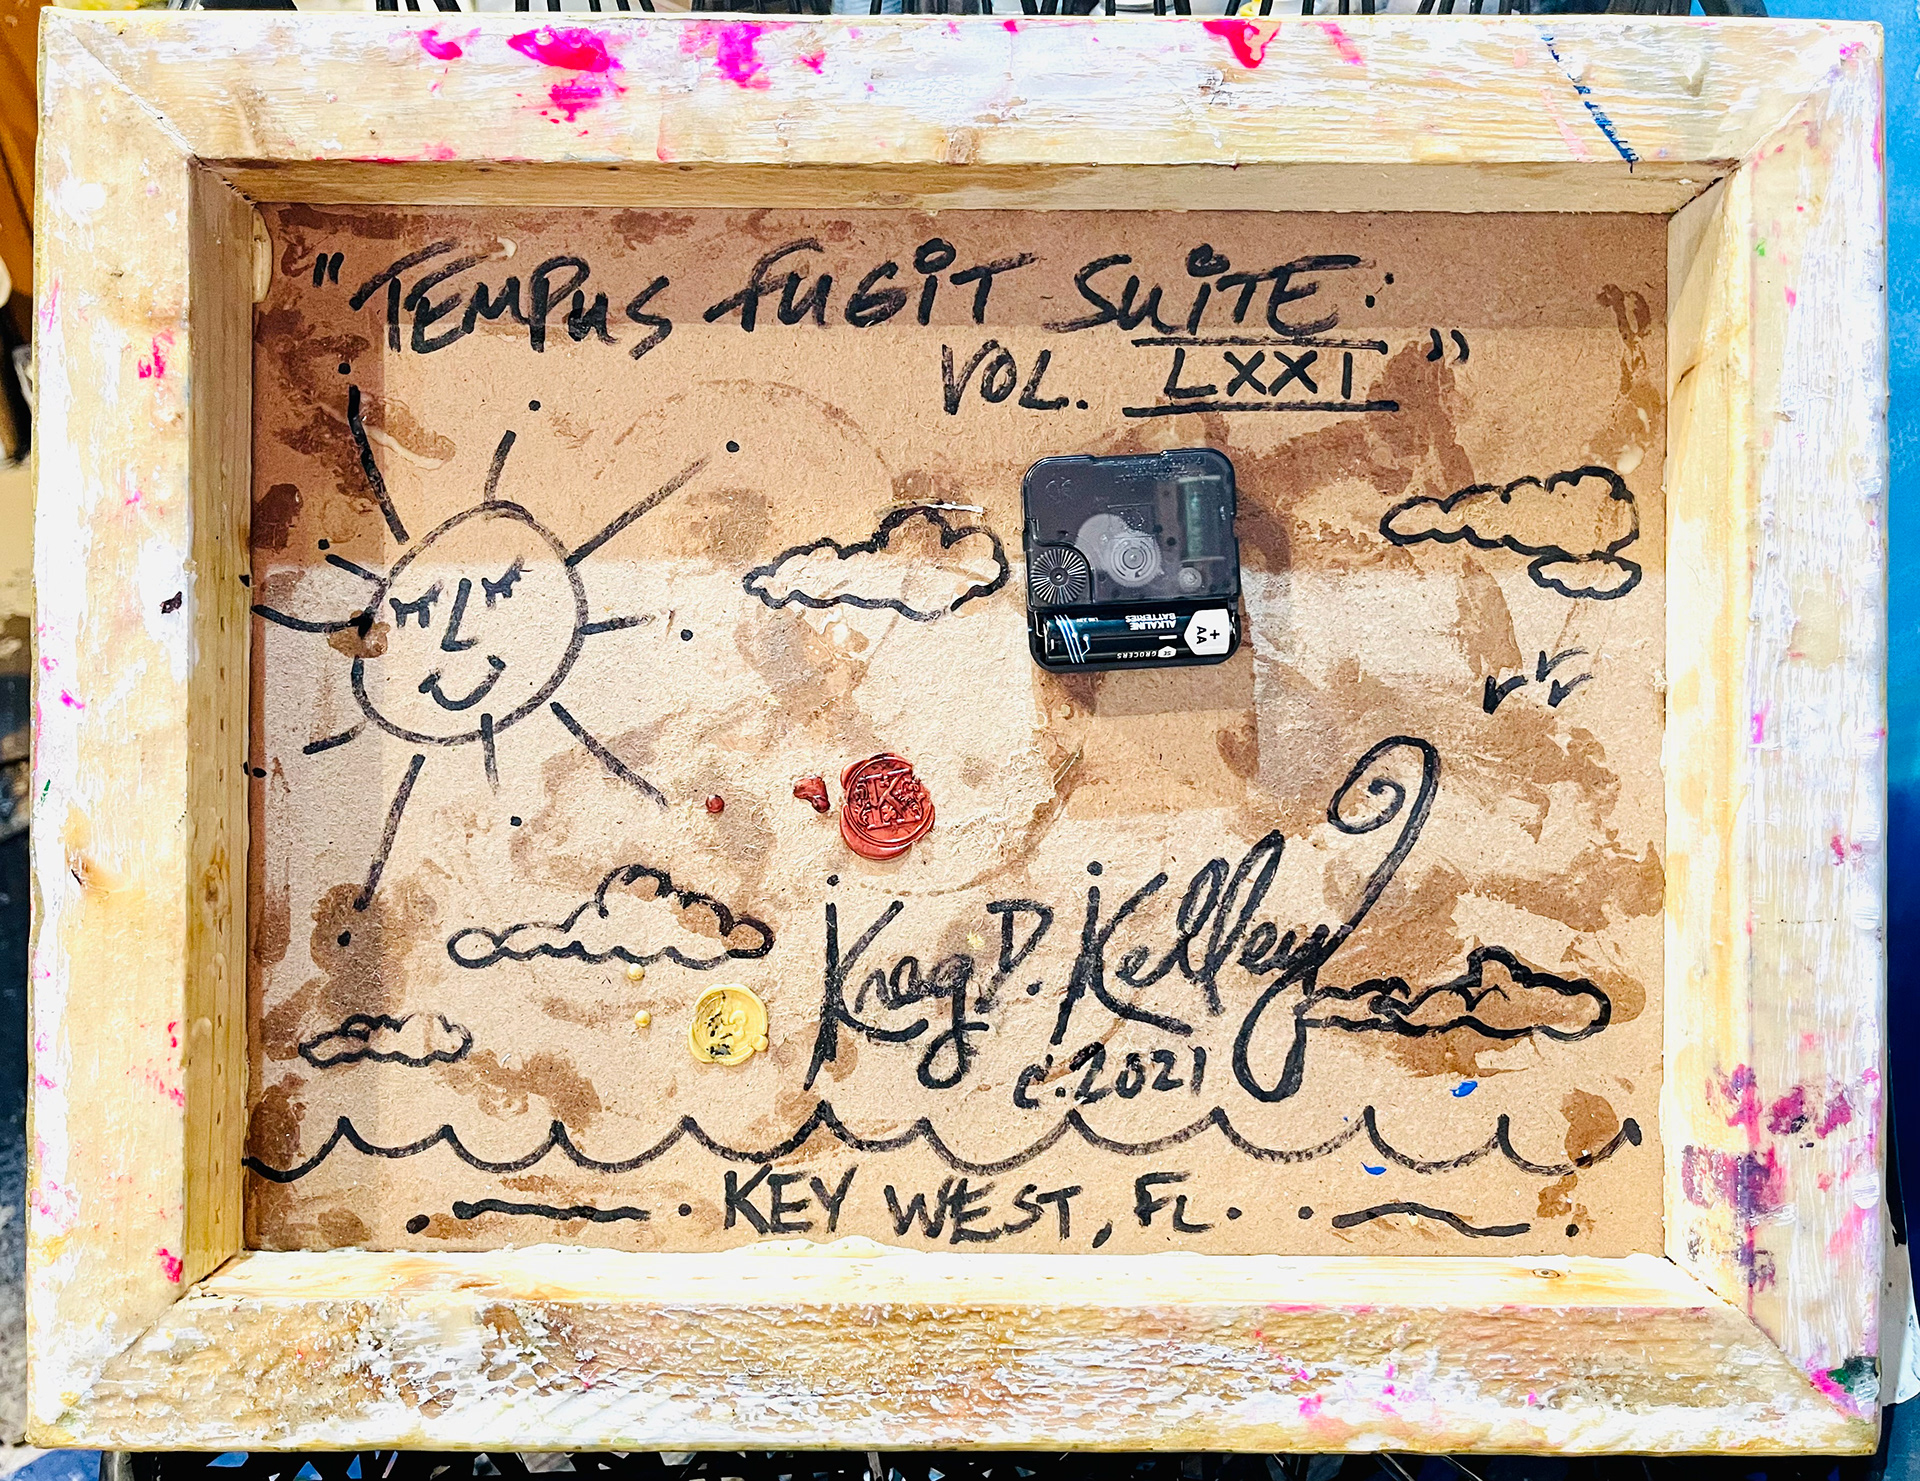 "TEMPUS FUGIT SUITE:
VOL. LXXI"
+
AA
ALKALINE
BATTERIES
GROCERS
K
Kreg D. Kelley
c. 2021
KEY WEST, FL.